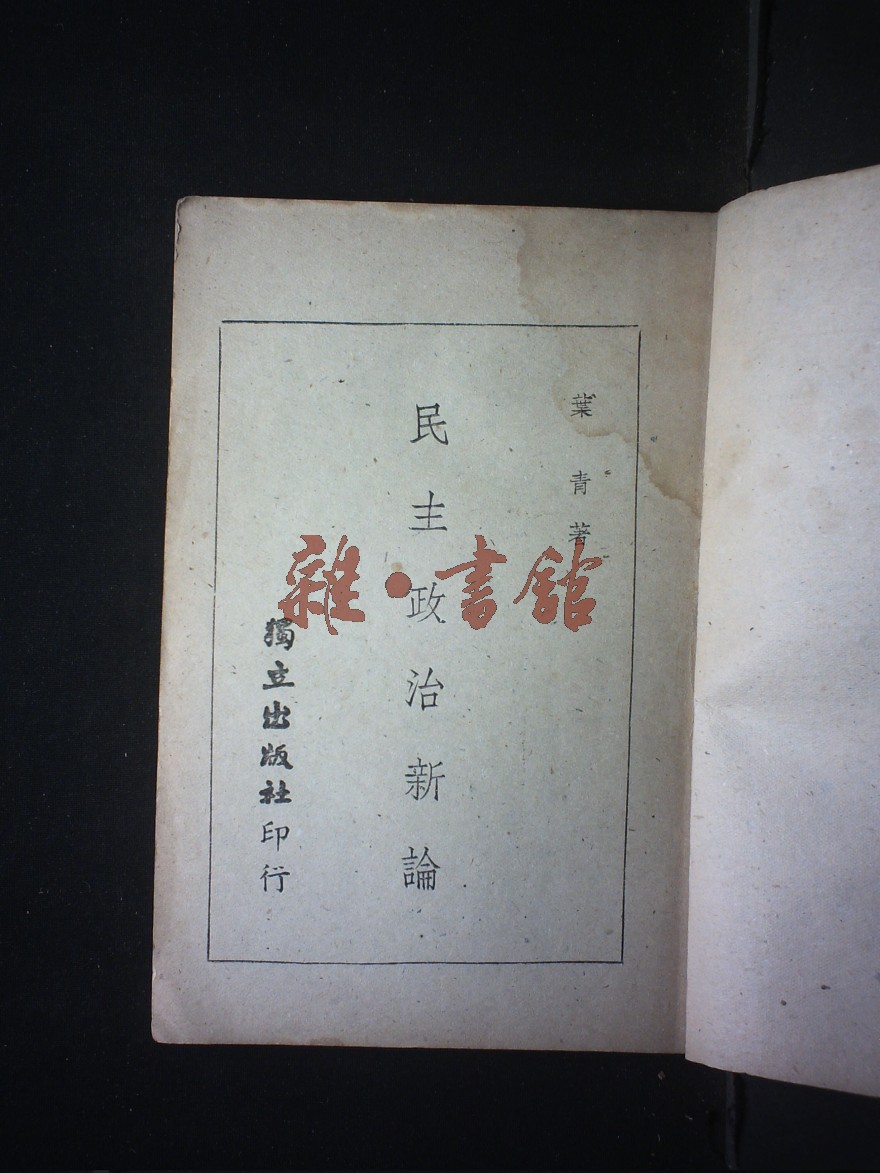 葉青著
民主政治新論
獨立出版社印行
雜·書館